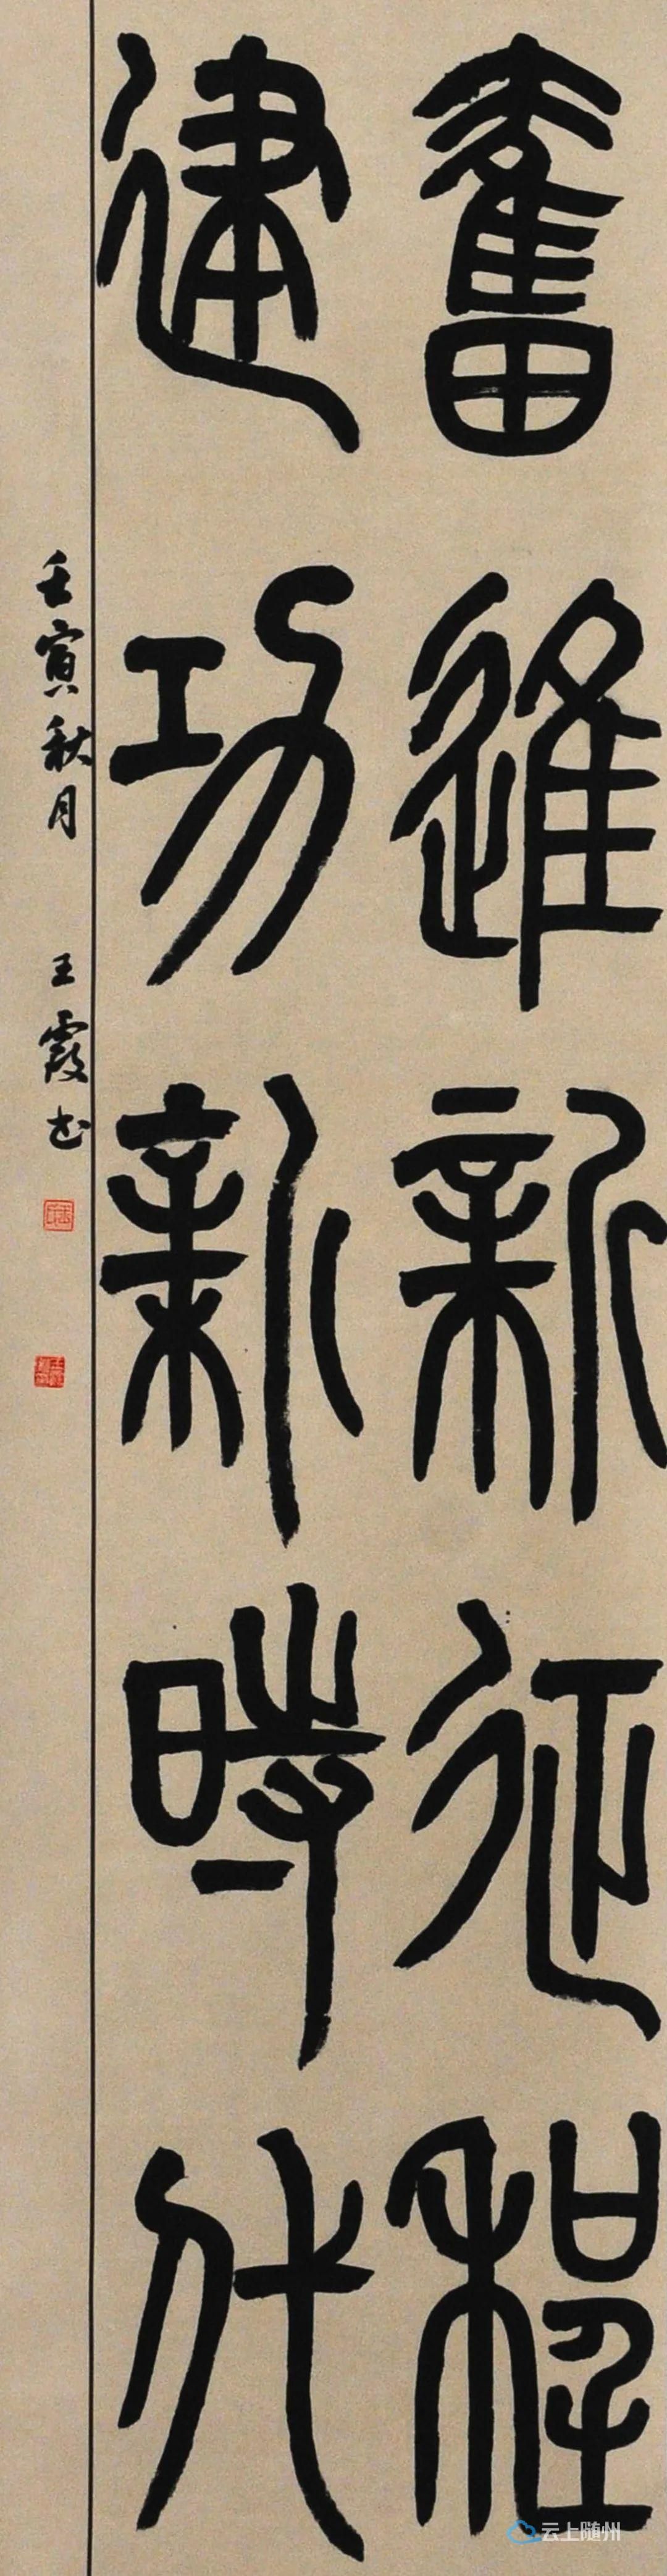 奮進新征程
建功新時代
壬寅秋月 王霞书
云上随州